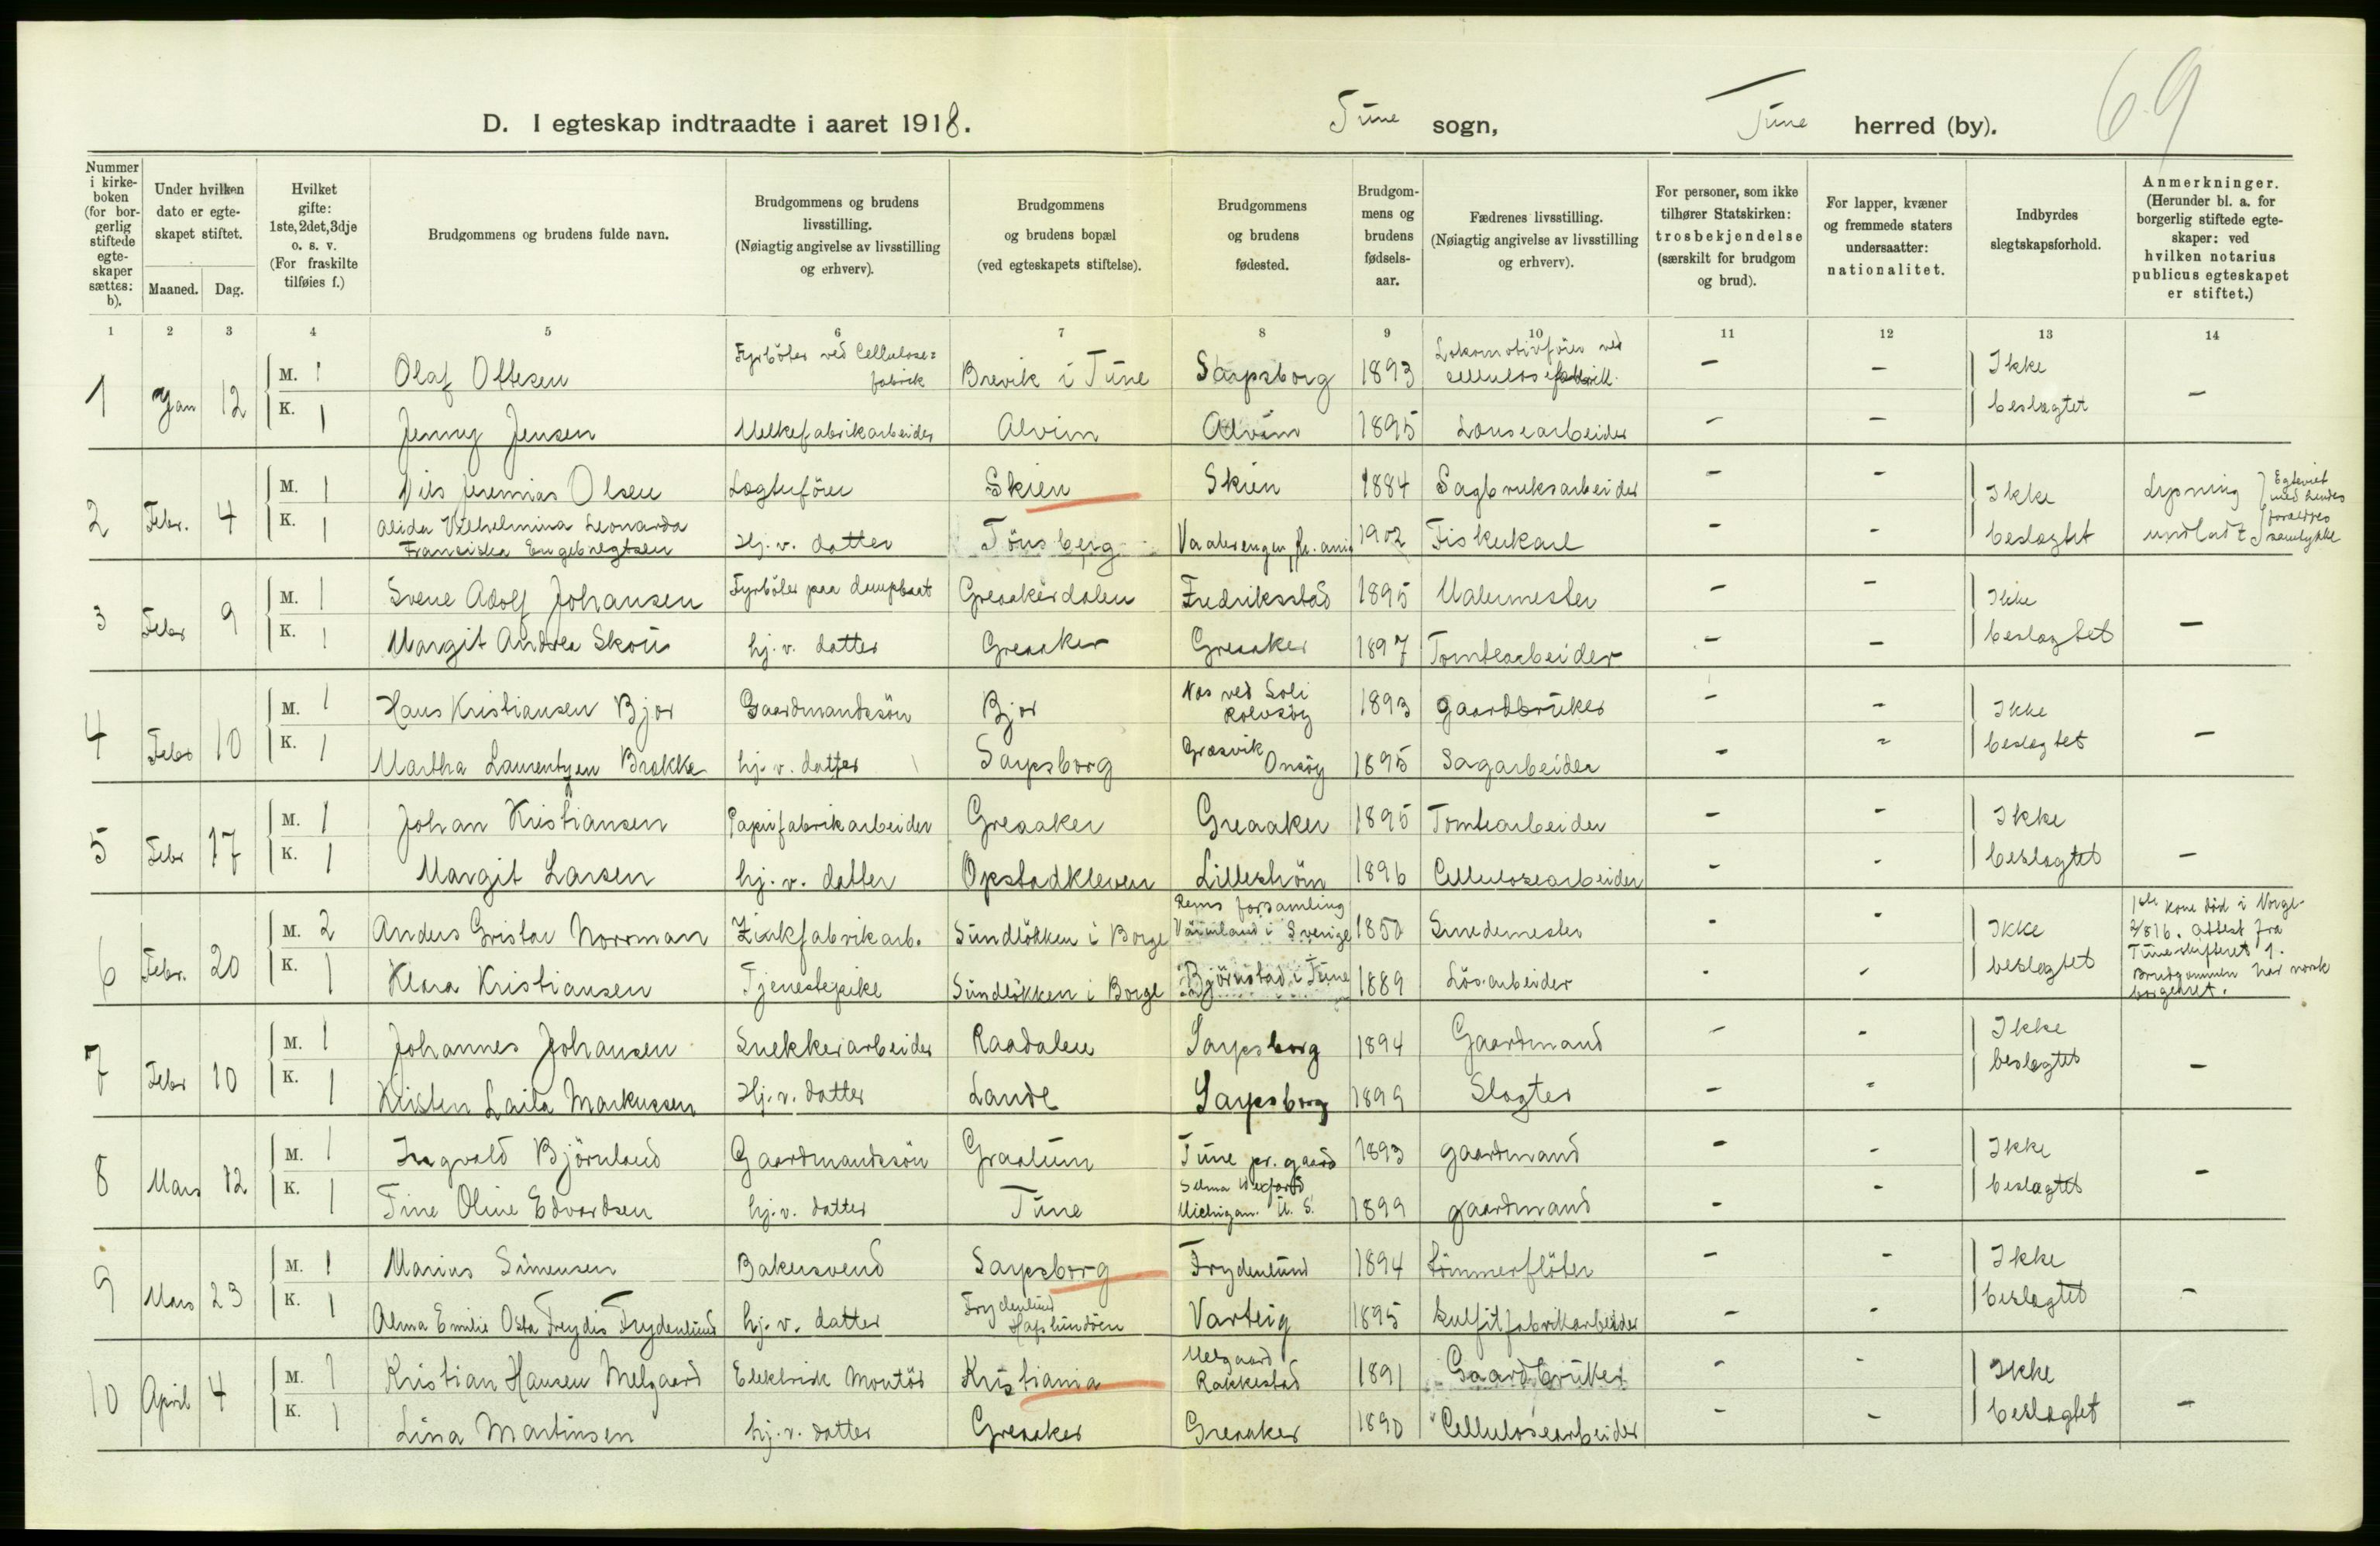 69
D. I egteskap indtraadte i aaret 1918. Tune sogn, Tune herred (by).
Nummer i kirke-boken (for bor-gerlig stiftede egte-skaper sættes: b).
Under hvilken dato er egte-skapet stiftet.
Maaned. Dag.
Hvilket gifte: 1ste, 2det, 3dje o. s. v. (For fraskilte tilføies f.)
Brudgommens og brudens fulde navn.
Brudgommens og brudens livsstilling. (Nøiagtig angivelse av livsstilling og erhverv).
Brudgommens og brudens bopæl (ved egteskapets stiftelse).
Brudgommens og brudens fødested.
Brudgom-mens og brudens fødsels-aar.
Fædrenes livsstilling. (Nøiagtig angivelse av livsstilling og erhverv).
For personer, som ikke tilhører Statskirken: trosbekjendelse (særskilt for brudgom og brud).
For lapper, kvæner og fremmede staters undersaatter: nationalitet.
Indbyrdes slegtskapsforhold.
Anmerkninger. (Herunder bl. a. for borgerlig stiftede egte-skaper: ved hvilken notarius publicus egteskapet er stiftet.)
1 2 3 4 5 6 7 8 9 10 11 12 13 14
1 Jan 12 M. 1 Olaf Ottesen Fyrböter ved Cellulose=fabrik Brevik i Tune Sarpsborg 1893 Lokomotivförer ved cellulosefabrikk. - - Ikke
K. 1 Jenny Jensen Melkefabrikarbeider Alvim Alvim 1895 Lousearbeider - - beslægtet -
2 Febr. 4 M. 1 Nils Jeremias Olsen Logtuförer Skien Skien 1884 Sagbruksarbeider - - Ikke Lysning Egteviet med hendes
K. 1 Alida Vilhelmina Leonarda Franciska Engebregtsen Hj. v. datter Tönsberg Vaalerengen, Kr.ania 1902 Fiskekarl - - beslægtet undladt foreldres samtykke
3 Febr 9 M. 1 Svene Adolf Johansen Fyrböter paa dampbaat Greaakerdalen Fredriksstad 1895 Malermester - - Ikke
K. 1 Margit Andrea Skou hj. v. datter Greaaker Greaaker 1897 Tomtearbeider - - beslægtet -
4 Febr 10 M. 1 Hans Kristiansen Bjor Gaardmandssön Bjor Næs ved Soli Rolvsöy 1893 gaardbruker - - Ikke
K. 1 Martha Laurentzen Brakke hj. v. datter Sarpsborg Græsvik Onsöy 1895 Sagarbeider - - beslægtet -
5 Febr 17 M. 1 Johan Kristiansen Papirfabrikarbeider Greaaker Greaaker 1895 Tomtearbeider - - Ikke
K. 1 Margit Larsen hj. v. datter Opstadkleven Lilleström 1896 Cellulosearbeider - - beslægtet -
6 Febr. 20 M. 2 Anders Gristav Norrman Zinkfabrikarb. Sundlökken i Borge Rems forsamling Värmland i Sverige 1850 Smedemester - - Ikke 1ste kone död i Norge 2/8 16. Attest fra
K. 1 Klara Kristiansen Tjenestepike Sundlökken i Borge Björnstad i Tune 1889 Lösarbeider - - beslægtet Tuneskifteret 1. Brudgommen har norsk borgerret.
7 Febr 10 M. 1 Johannes Johansen Snekkerarbeider Raadalen Sarpsborg 1894 Gaardmand - - Ikke
K. 1 Kristen Laila Markussen Hj. v. datter Lande Sarpsborg 1899 Slagter - - beslægtet -
8 Mars 12 M. 1 Ingvald Björnland Gaardmandssön Graalum Tune pr. gaard 1893 gaardmand - - Ikke
K. 1 Tine Oline Edvardsen hj. v. datter Tune Selma Wexford Michigan. U. S. 1899 gaardmand - - beslægtet -
9 Mars 23 M. 1 Marius Simensen Bakersvend Sarpsborg Frydenlund 1894 tömmerflöter - - Ikke
K. 1 Alma Emilie Osta Freydis Frydenlund hj. v. datter Frydenlund Hafslundsöen Varteig 1895 Sulfitfabrikarbeider - - beslægtet -
10 April 4 M. 1 Kristian Hansen Melgaard Elektrisk Montör Kristiania Melgaard Rakkestad 1891 Gaardbruker - - Ikke
K. 1 Lina Martinsen hj. v. datter Greaaker Greaaker 1890 Cellulosearbeider - - beslægtet -